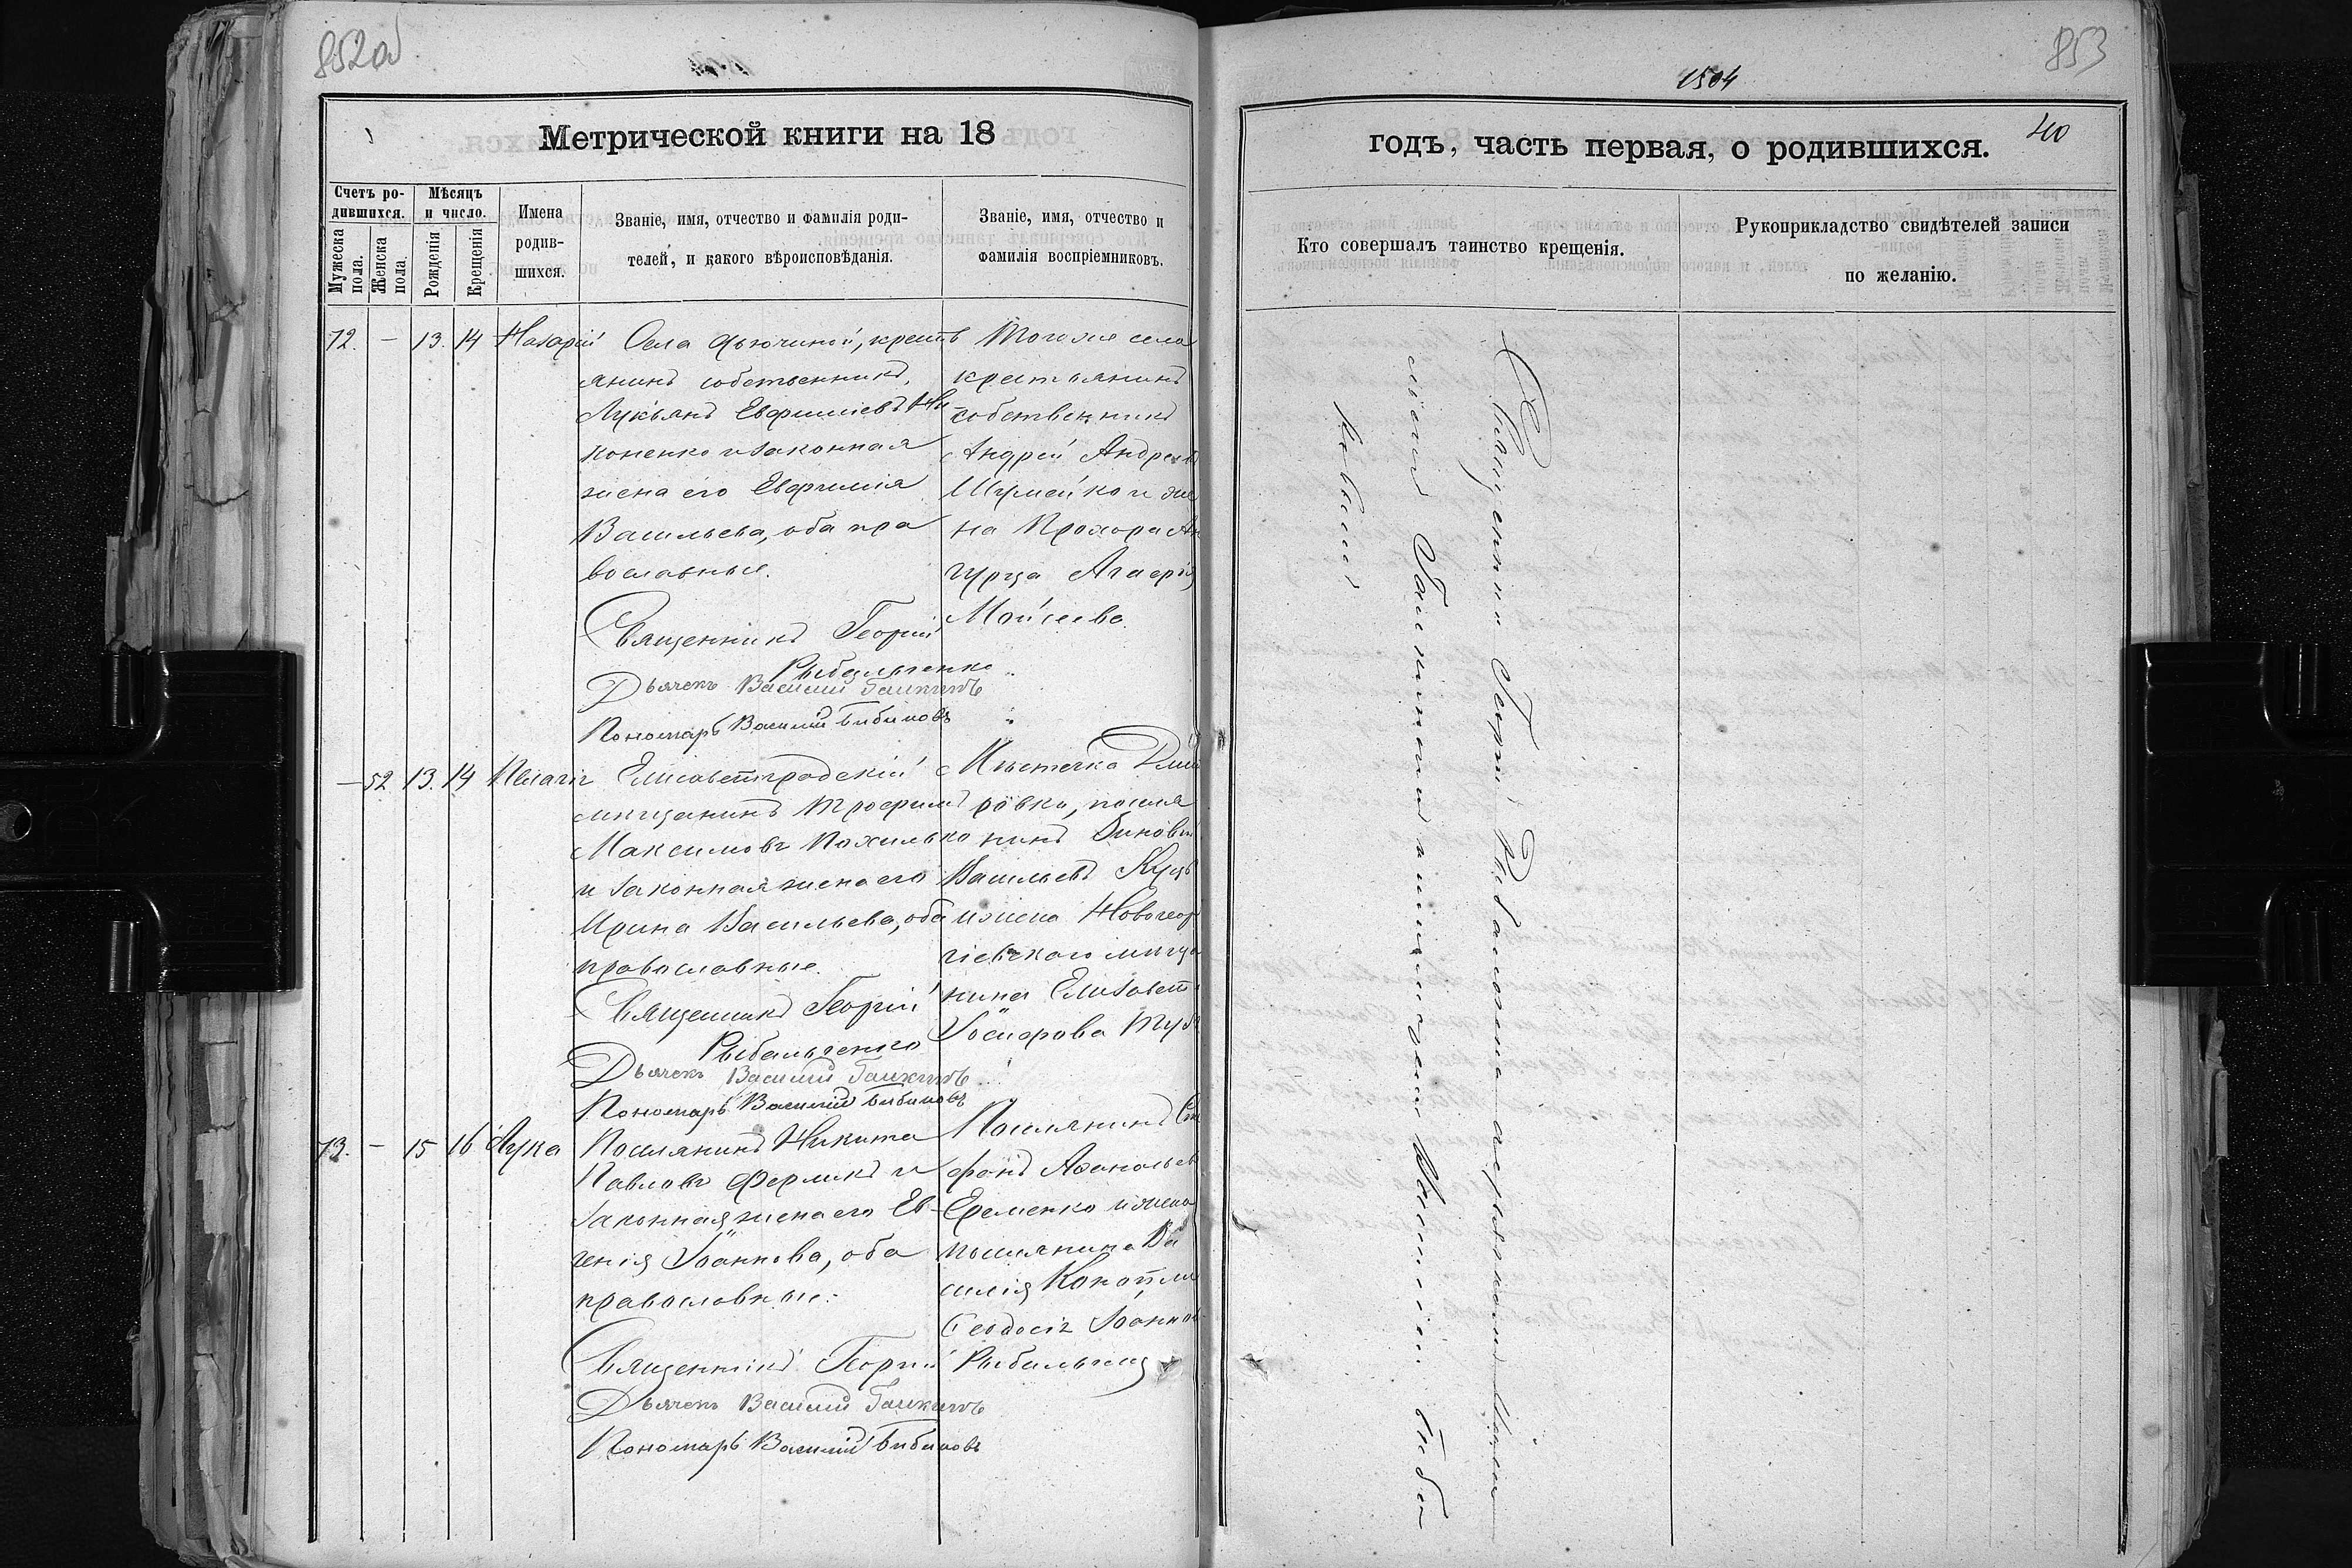 852об
Метрической книги на 18
Счетъ ро-
дившихся.
Мужеска пола.
Женска пола.
Мѣсяцъ
и число.
Рожденія
Крещенія
Имена
родив-
шихся.
Званіе, имя, отчество и фамилія роди-
телей, и какого вѣроисповѣданія.
Званіе, имя, отчество и
фамилія воспріемниковъ.
72. - 13. 14 Назарій
Села крестъ
янинъ собственникъ,
Лукьянъ Евфиміевъ Ни-
коненко и законная
жена его Евфимія
Васильева, оба пра
вославные.
Священникъ Георгій
Рыбальченко
Дьячекъ Василій
Пономарь Василій Бибиковъ
Того же села
крестьянинъ
собственникъ
Андрей Андреевъ
Шумейко и же
на Прохора
Агафія
Моисеева
- 52 13. 14 Пелагія
Елисаветградскій
мѣщанинъ Трофимъ
Максимовъ Похилько
и законная жена его
Ирина Васильева, оба
православные.
Священникъ Георгій
Рыбальченко
Дьячекъ Василій
Пономарь Василій Бибиковъ
Мѣстечка Дмит
ровки, поселя
нинъ Зиновій
Васильевъ Куцъ
и жена Новогеор
гіевскаго мѣща
нина Елизавета
Іосифова
73. - 15 16 Лука
Поселянинъ Никита
Павловъ и
законная жена его Ев-
генія Іоаннова, оба
православные.
Священникъ Георгій
Дьячекъ Василій
Пономарь Василій Бибиковъ
Поселянинъ
Афанасьев
Еременко и жена
поселянина Ва
силія
Феодосія Іоаннов
Рыбальченко
853
1504
40
годъ, часть первая, о родившихся.
Кто совершалъ таинство крещенія.
Рукоприкладство свидѣтелей записи
по желанію.
Священникъ Георгій Рыбальченко
Василіемъ Биби
ковымъ